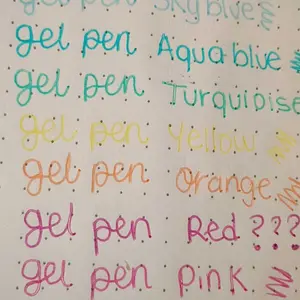 gel pen Sky blue
gel pen : Aqua blue
gel pen Turquoise
gel pen Yellow
gel pen Orange.
gel pen Red ???
gel pen : pink.